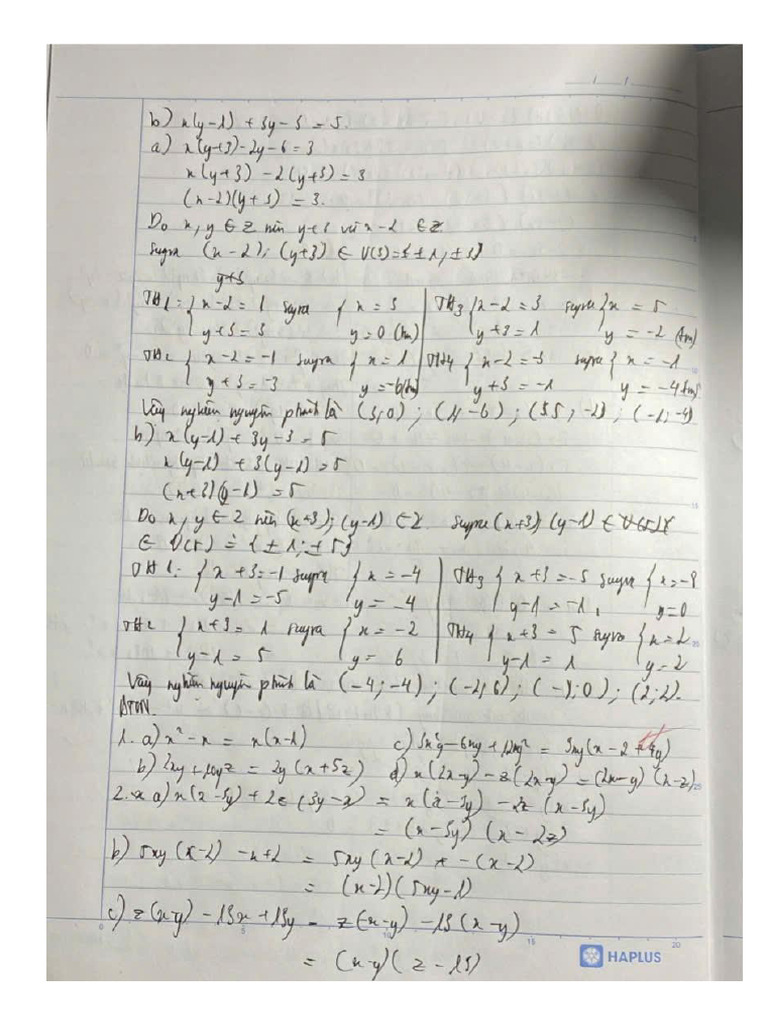 b) x(y-1) + 3y-3 = 5.
a) x(y+3)-2y-6=3
x(y+3) -2(y+3) = 3
(x-2)(y+3) = 3.
Do x, y ∈ Z nên y+3 và x-2 ∈ Z.
Suy ra (x-2); (y+3) ∈ Ư(3)={±1; ±3}
y+3
TH1: { x-2 = 1 suy ra { x = 3 | TH3 { x-2 = 3 suy ra { x = 5
y+3 = 3 y=0 (tm) | y+3 = 1 y = -2 (tm)
TH2 { x-2 = -1 suy ra { x = 1 | TH4 { x-2 = -3 suy ra { x = -1
y+3 = -3 y=-6(tm) | y+3 = -1 y = -4 (tm)
Vậy nghiệm nguyên ptrình là (3;0); (1;-6); (5; -2); (-1; -4)
b) x(y-1) + 3y-3 = 5
x(y-1) + 3(y-1) = 5
(x+3)(y-1) = 5
Do x, y ∈ Z nên (x+3); (y-1) ∈ Z. Suy ra (x+3); (y-1)
∈ Ư(5) = {±1; ±5}
TH1: { x+3=-1 suy ra { x = -4 | TH3 { x+3 = -5 suy ra { x=-8
y-1 = -5 y= -4 | y-1 = -1 y=0
TH2 { x+3 = 1 suy ra { x = -2 | TH4 { x+3 = 5 suy ra { x=2
y-1 = 5 y= 6 | y-1 = 1 y=2
Vậy nghiệm nguyên ptrình là (-4;-4); (-2;6); ;0); (2;2).
BTVN.
1. a) x²-x = x(x-1) c) 3x²y-6xy+12xy² = 3xy(x-2+4y)
b) 2xy+10yz = 2y(x+5z) d) x(2x-y)-z(2x-y)=(2x-y)(x-z)
2. a) x(x-5y) + 2z (5y-x) = x(x-5y) - 2z (x-5y)
= (x-5y) (x-2z)
b) 5xy(x-2) -x+2 = 5xy(x-2) -(x-2)
= (x-2)(5xy-1)
c) z(x-y) -13x+13y = z(x-y) -13(x-y)
= (x-y)(z-13)
HAPLUS